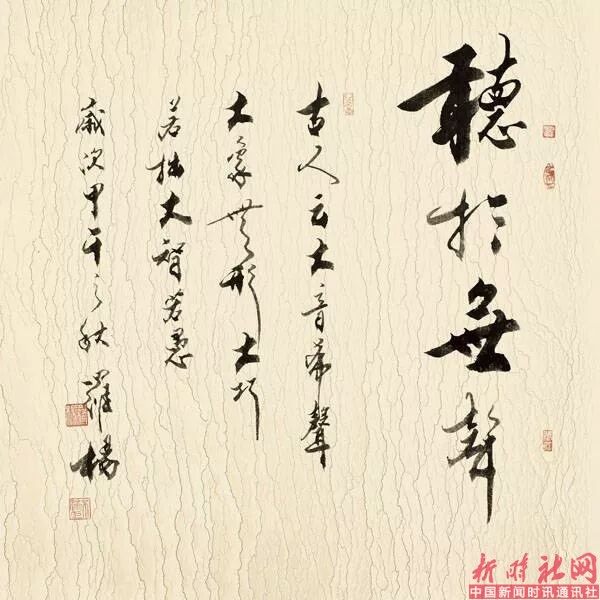 聽於無聲
古人云大音希聲
大象無形大巧
若拙大智若愚
歲次甲午之秋羅楊
新时社网
中国新闻时讯通讯社